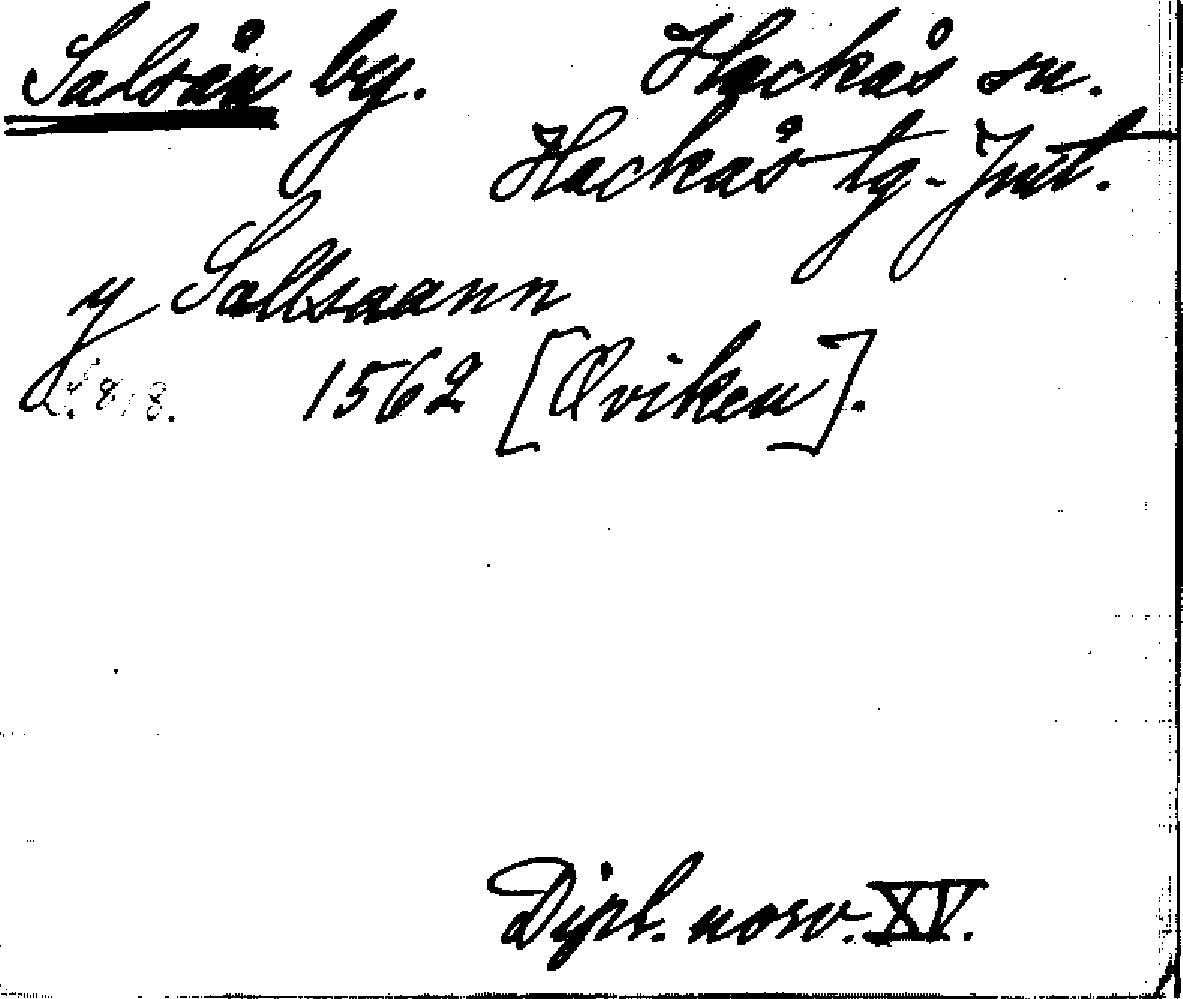 Salsån by. Hackås sn.
Hackås tg. Jmt.
y Sallsaann
1562 [Øviken].
S. 818.
Dipl. norv. XV.